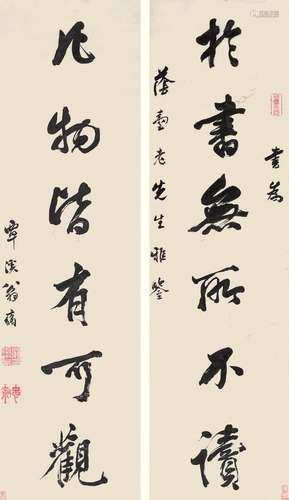 書為
於書無所不讀
蔭壺老先生雅鑒
凡物皆有可觀
覃溪翁方綱